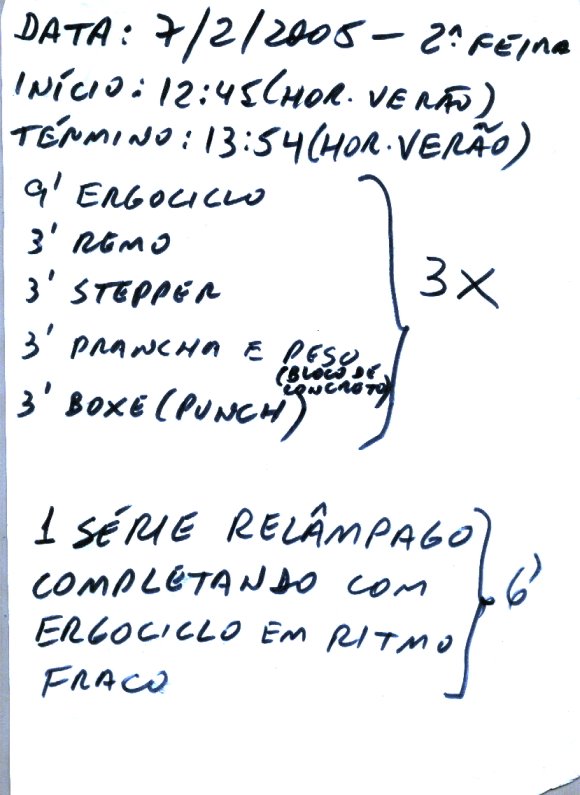 DATA: 7/2/2005 – 2ª FEIRA
INÍCIO: 12:45 (HOR. VERÃO)
TÉRMINO: 13:54 (HOR. VERÃO)
9' ERGOCICLO
3' REMO
3' STEPPER
3' PRANCHA E PESO
(BLOCO DE
CONCRETO)
3' BOXE (PUNCH)
3X
1 SÉRIE RELÂMPAGO
COMPLETANDO COM
ERGOCICLO EM RITMO
FRACO
6'